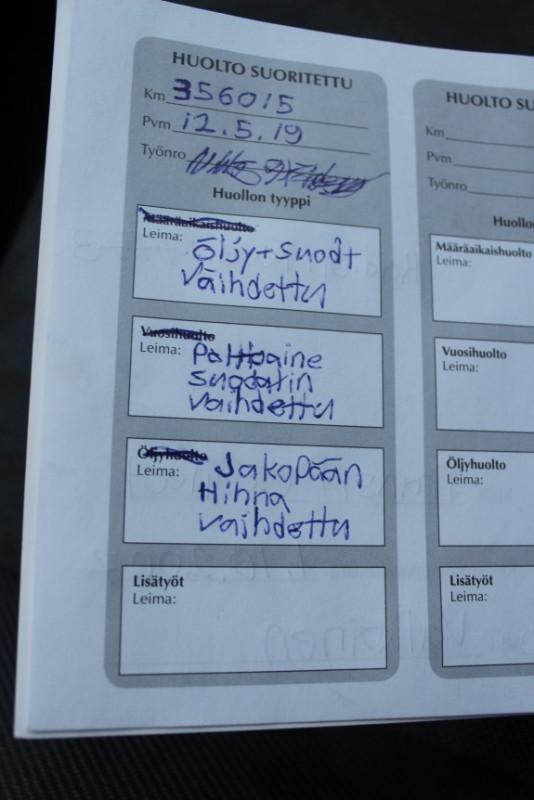 HUOLTO SUORITETTU
Km 356015
Pvm 12.5.19
Työnro
Huollon tyyppi
Määräaikaishuolto
Leima: Öljy+suodt
Vaihdettu
Vuosihuolto
Leima:
suodatin
vaihdettu
Öljyhuolto
Leima: Jakopään
Hihna
vaihdettu
Lisätyöt
Leima:
HUOLTO SU
Km
Pvm
Työnro
Huollo
Määräaikaishuolto
Leima:
Vuosihuolto
Leima:
Öljyhuolto
Leima:
Lisätyöt
Leima: